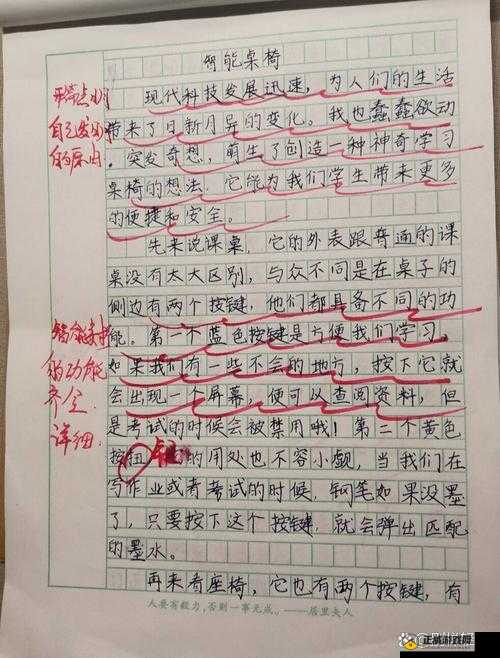 智能桌椅
现代科技发展迅速，为人们的生活
带来了日新月异的变化。我也蠢蠢欲动
，突发奇想，萌生了创造一种神奇学习
桌椅的想法，它能为我们学生带来更多
的便捷和安全。
先来说课桌，它的外表跟普通的课
桌没有太大区别，与众不同是在桌子的
侧边有两个按键，他们都具备不同的功
能。第一个蓝色按键是方便我们学习，
如果我们有一些不会的地方，按下它就
会出现一个屏幕，便可以查阅资料，但
是考试的时候会被禁用哦！第二个黄色
按扭钮的用处也不容小觑，当我们在
写作业或者考试的时候，钢笔如果没墨
了，只要按下这个按键，就会弹出匹配
的墨水。
再来看座椅，它也有两个按键，有
人要有毅力，否则一事无成。——居里夫人
开篇点明
自己发明
的原由
的功能
齐全
详细
正航游戏网